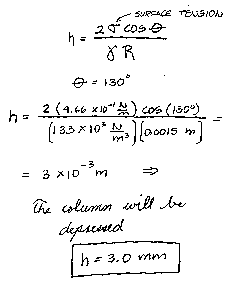 SURFACE TENSION
h = 2 σ cos θ / γ R
θ = 130°
h = 2 (4.66 × 10⁻¹ N/m) cos (130°) / (133 × 10³ N/m³) (0.0015 m) =
= 3 × 10⁻³ m ⇒
The column will be
depressed
h = 3.0 mm